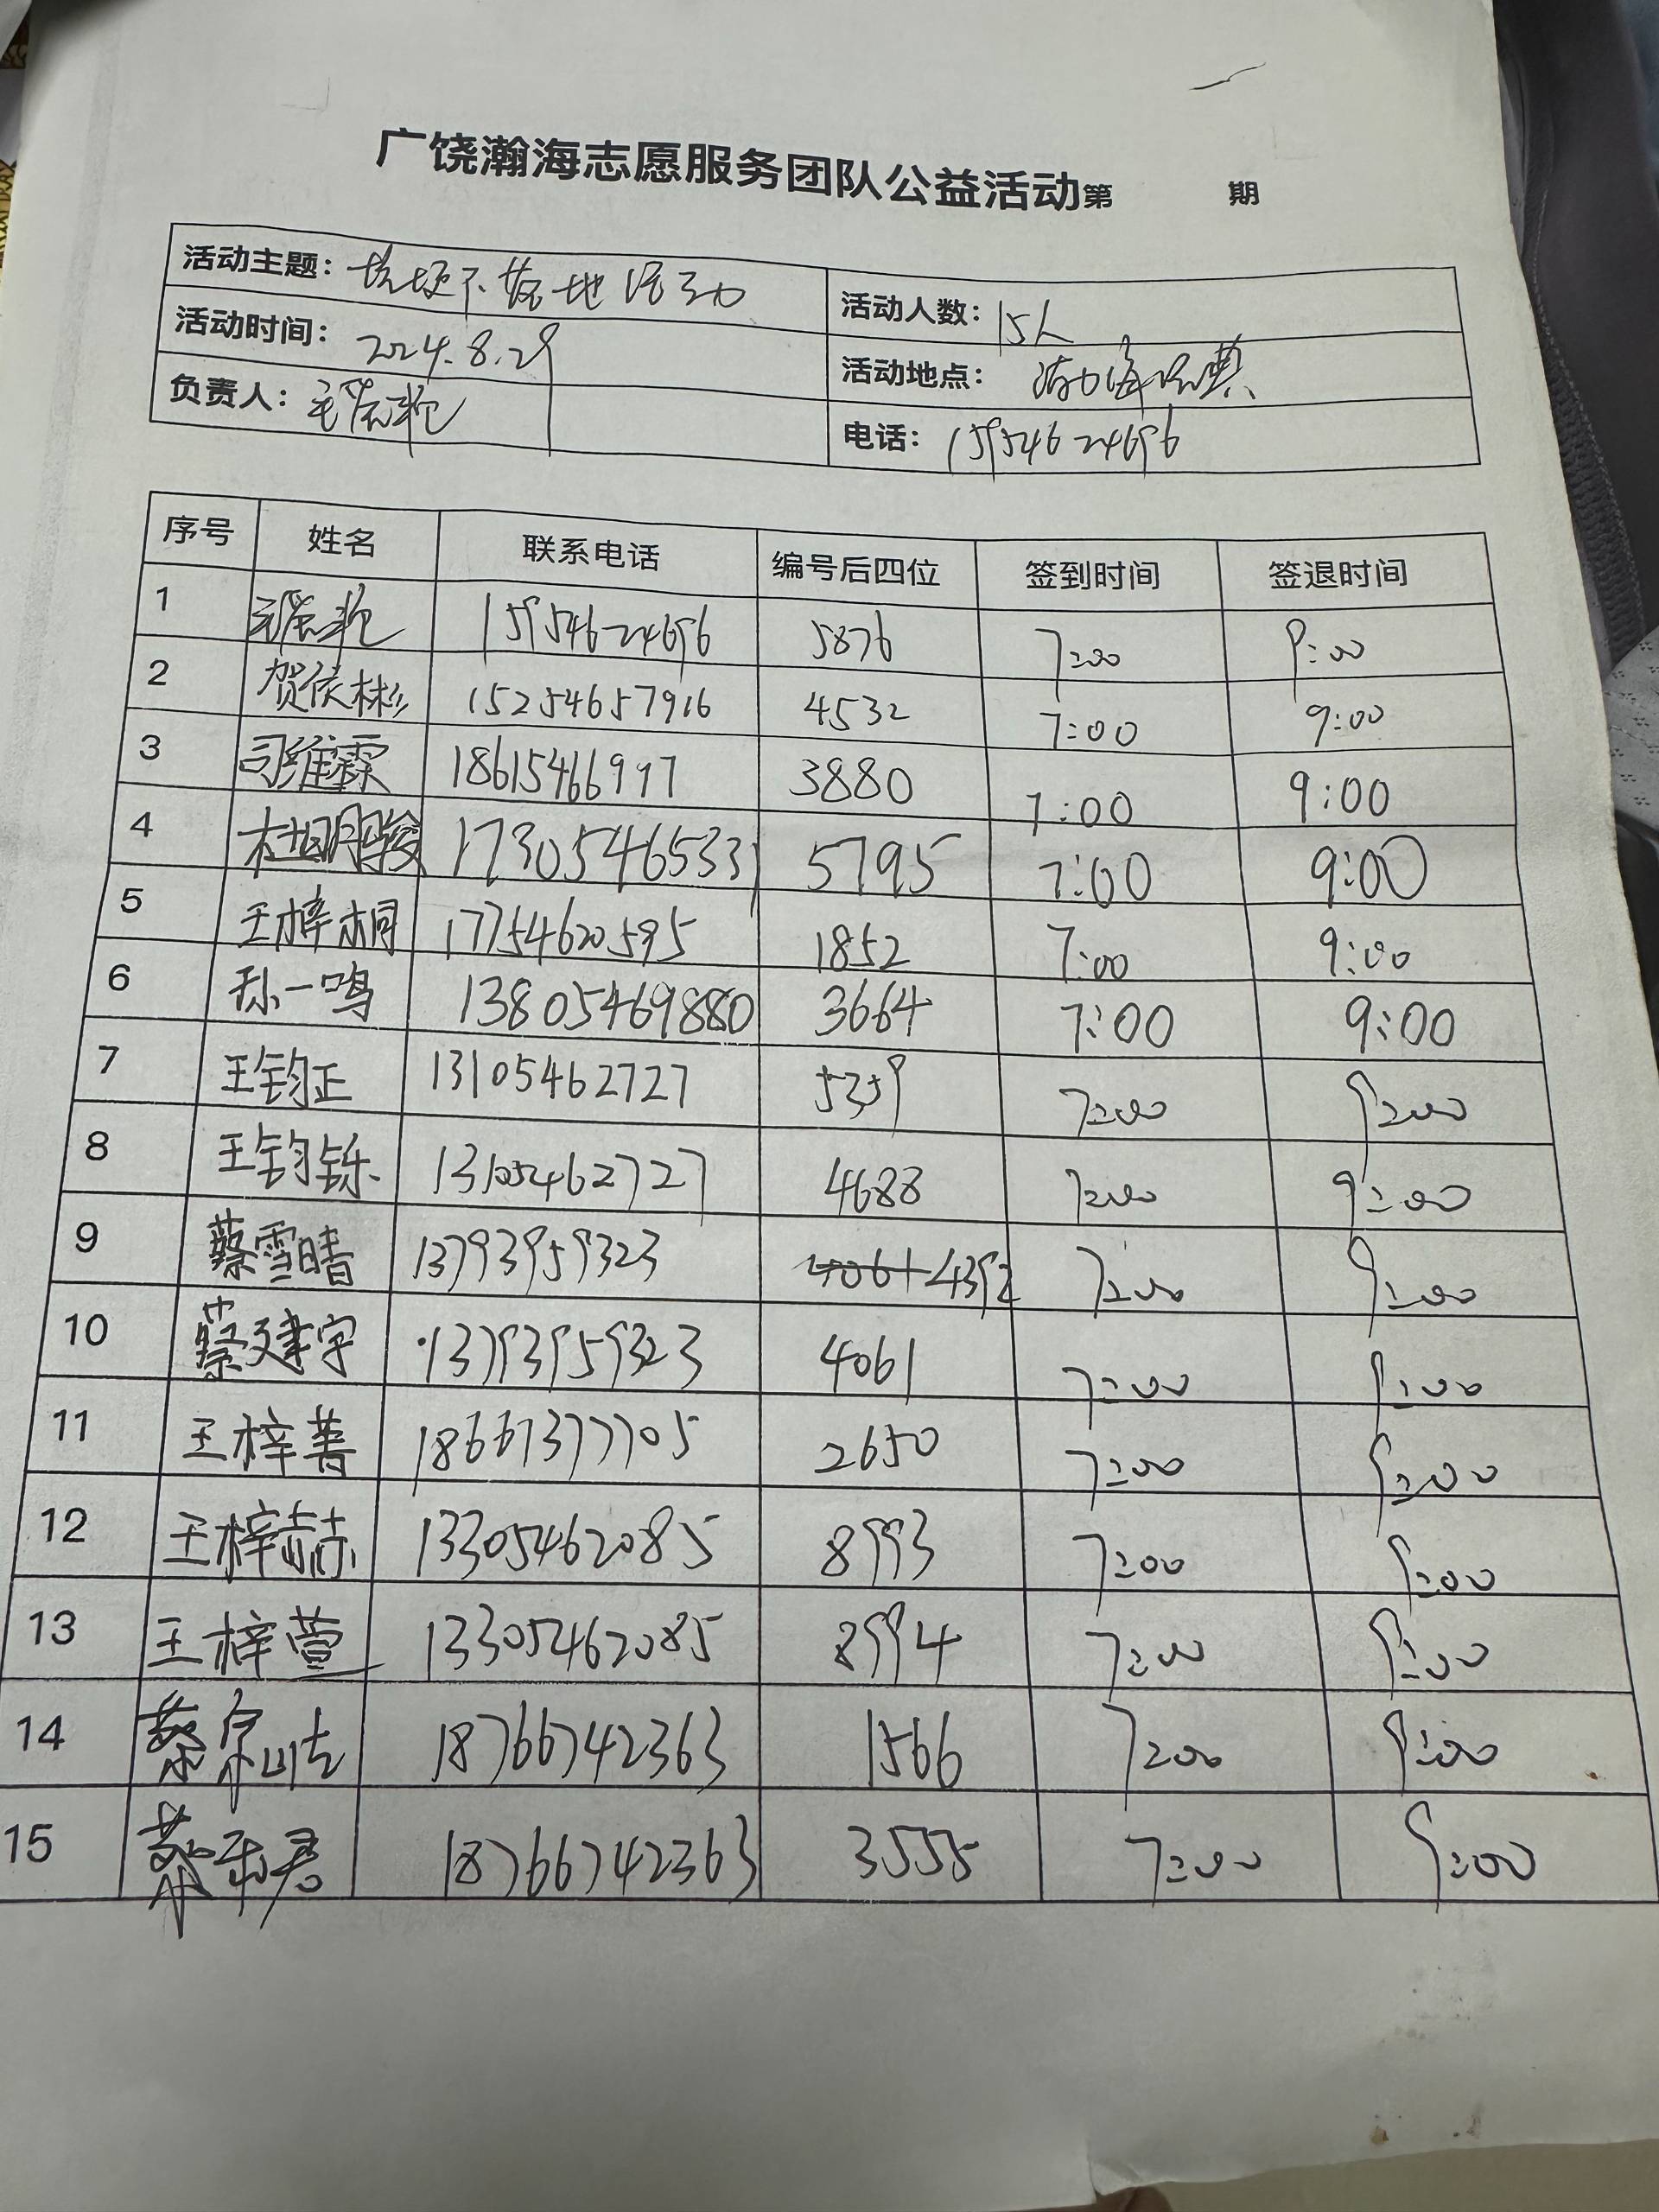 广饶瀚海志愿服务团队公益活动第 期
活动主题: 垃圾不落地活动 活动人数: 15人
活动时间: 2024.8.29 活动地点: 渤海
负责人: 电话: 15954624696
序号 姓名 联系电话 编号后四位 签到时间 签退时间
1 15954624696 5876 7:00 9:00
2 贺依彬 15254657916 4532 7:00 9:00
3 司维霖 18615466997 3880 7:00 9:00
4 杜明骏 17305465331 5795 7:00 9:00
5 王梓桐 17754620595 1852 7:00 9:00
6 孙一鸣 13805469880 3664 7:00 9:00
7 王钧正 13105462727 5359 7:00 9:00
8 王钧铄 13105462727 4688 7:00 9:00
9 蔡雪晴 13793959323 4061 4392 7:00 9:00
10 蔡建宇 13793959323 4061 7:00 9:00
11 王梓菁 18661377705 2650 7:00 9:00
12 王梓赫 13305462085 8993 7:00 9:00
13 王梓萱 13305462085 8994 7:00 9:00
14 蔡 18766742363 1566 7:00 9:00
15 蔡 君 18766742363 3555 7:00 9:00